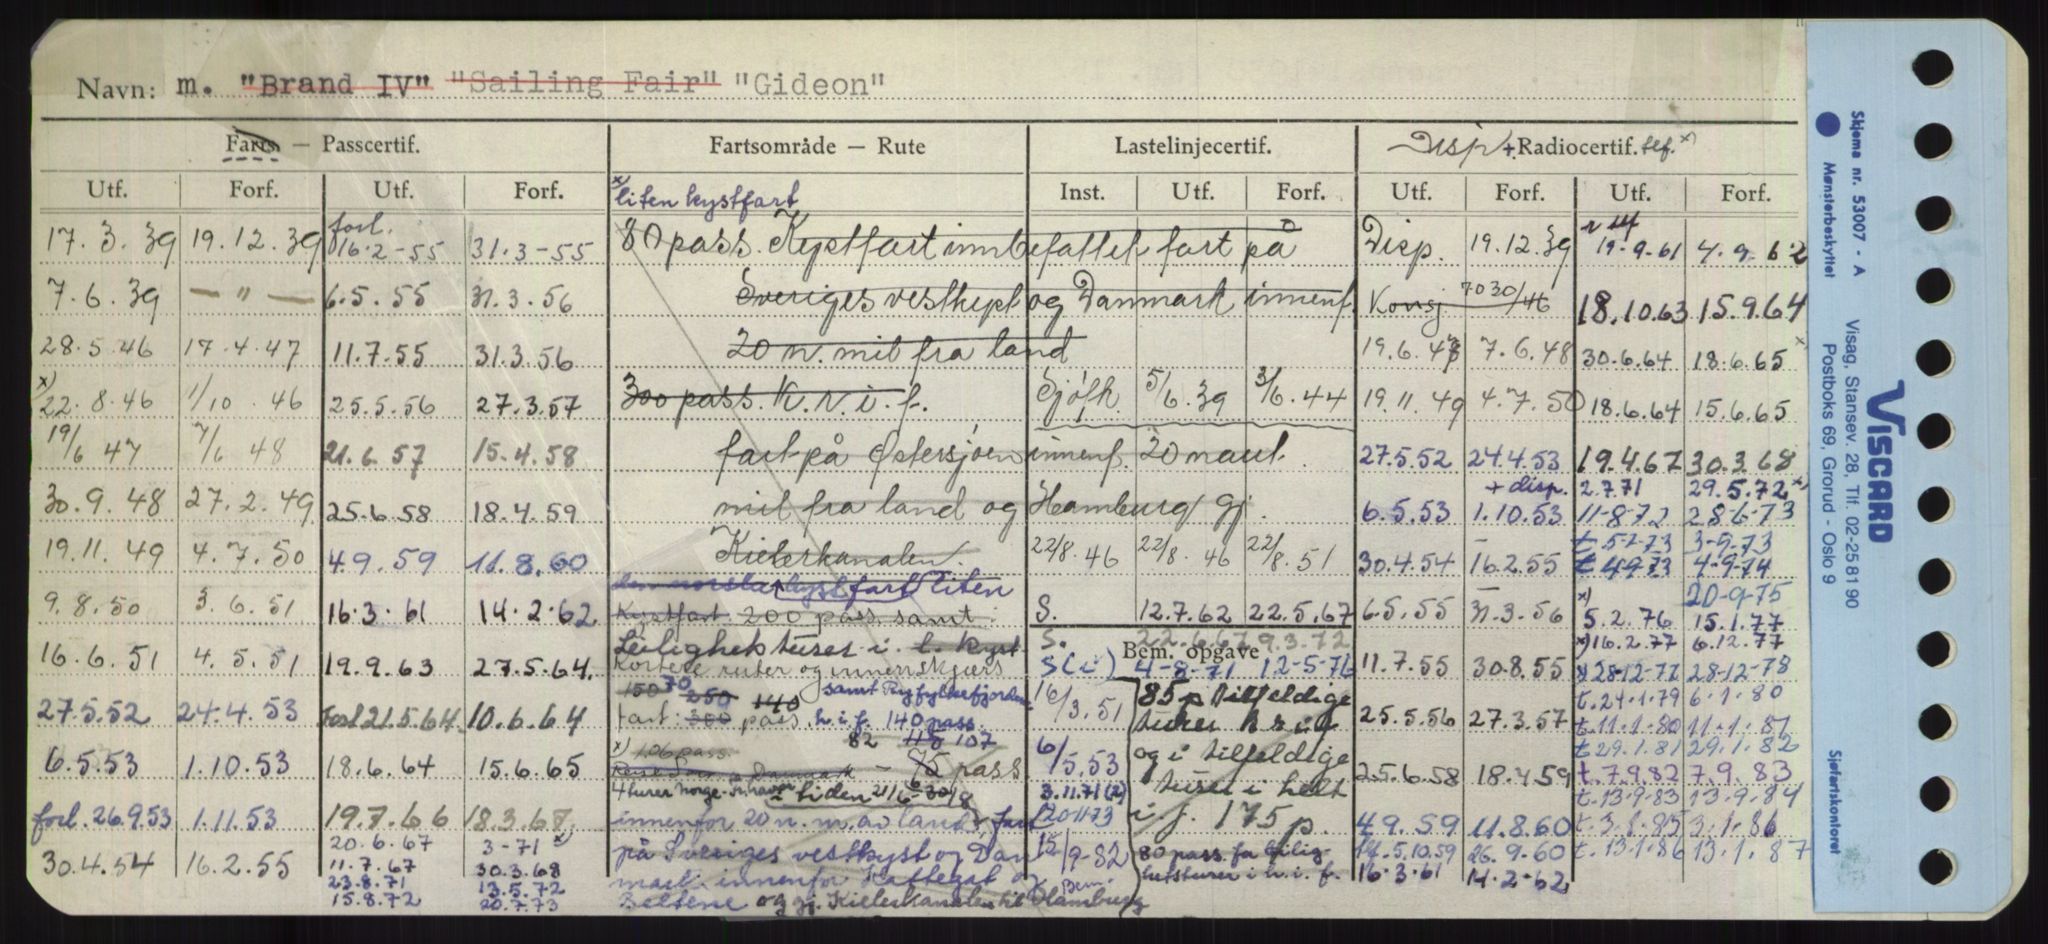 Navn: m. "Brand IV" "Sailing Fair" "Gideon"
Farts - Passcertif. Fartsområde — Rute Lastelinjecertif. Disp + Radiocertif. tlf. x)
Utf. Forf. Utf. Forf. x) liten kystfart Inst. Utf. Forf. Utf. Forf. Utf. Forf.
17.3.39 19.12.39 forl. 16.2-55 31.3-55 80 pass. Kystfart innbefattet fart på Disp. 19.12.39 19.9.61 4.9.62
7.6.39 — " — 6.5.55 31.3.56 Sveriges vestkyst og Danmark innenf. 7030/46 18.10.63 15.9.64
28.5.46 17.4.47 11.7.55 31.3.56 20 n. mil fra land 19.6.47 7.6.48 30.6.64 18.6.65 x
x) 22.8.46 1/10.46 25.5.56 27.3.57 300 pass. K.r.i.f. Sjøfk. 5/6.39 3/6.44 19.11.49 4.7.50 18.6.64 15.6.65
19/6 47 7/6 48 21.6.57 15.4.58 fart på Østersjøen innenf. 20 naut. 27.5.52 24.4.53 19.4.67 30.3.68
+ disp. 2.7.71 29.5.72 x)
30.9.48 27.2.49 25.6.58 18.4.59 mil fra land og Hamburg gj. 6.5.53 1.10.53 11-8-72 28-6-73
19.11.49 4.7.50 4.9.59 11.8.60 Kielerkanalen. 22/8.46 22/8.46 22/8.51 30.4.54 16.2.55 t 4-9-73 4-9-74
kystfart liten 20-9-75
9.8.50 3.6.51 16.3.61 14.2.62 Kystfart 200 pass. samt S. 12.7.62 22.5.67 6.5.55 31.3.56 x) 5.2.76 15.1.77
S. 22.6.67 9.3.72 x) 16.2.77 6.12.77
Leilighetsturer i l. kyst Bem. opgave
16.6.51 4.5.51 19.9.63 27.5.64. Kortere ruter og innenskjærs S(i) 4-8-71 12-5-76 11.7.55 30.8.55 28-12-77 28-12-78
150 70 250 140 samt Ryfylkefjorden 16/3.51 85 p tilfeldige t.24.1.79 6.1.80
27.5.52 24.4.53 Forl 21.5.64 10.6.64 fart: pass. h.i.f. 140 pass. turer k r i f 25.5.56 27.3.57 t.11.1.80 11.1.81
x) 106 pass. 82 115 107 6/5.53 og i tilfeldige t.29.1.81 29.1.82
6.5.53 1.10.53 18.6.64 15.6.65 Danmark — 75 pass turer i helt 25.6.58 18.4.59 t.7.9.82 7.9.83
4 turer Norge- i tiden 21/6-30/8 3.11.71(2) t.13.9.83 13.9.84
forl. 26.9.53 1.11.53 19.7.66 18.3.67 innenfor 20 n.m. av land, fart 20-11-73 i f. 175 p. 4.9.59 11.8.60 t.3.1.85 3.1.86
20.6.67 3-71 x) på Sveriges vestkyst og Dan 15/9-82 80 pass. for leilig- 14.5.10.59 26.9.60 t.13.1.86 13.1.87
30.4.54 16.2.55 11.7.67 30.3.68 mark innenfor Kattegat hetsturer i h.i.f. 16.3.61 14.2.62
23.8.71 13.5.72 Bem.
15.8.72 20.7.73 Beltene og gj. Kielerkanalen til Hamburg
Skjema nr. 53007 - A Mønsterbeskyttet
Visag, Stansev. 28, Tlf. 02-25 81 90
Postboks 69, Grorud - Oslo 9
VISCARD
Sjøfartskontoret